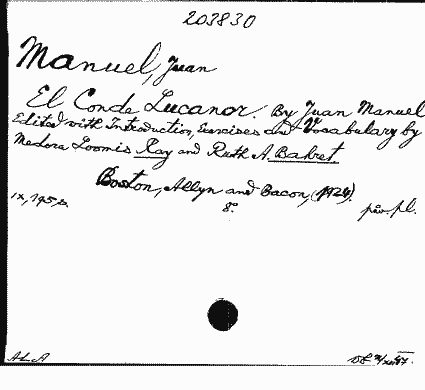 203830
Manuel, Juan
El Conde Lucanor. By Juan Manuel
Edited with Introduction, Exercises and Vocabulary by
Medora Loomis Ray and Ruth A. Bahret
Boston, Allyn and Bacon, (1924).
ix, 195 p. 8°. pl.
ALA